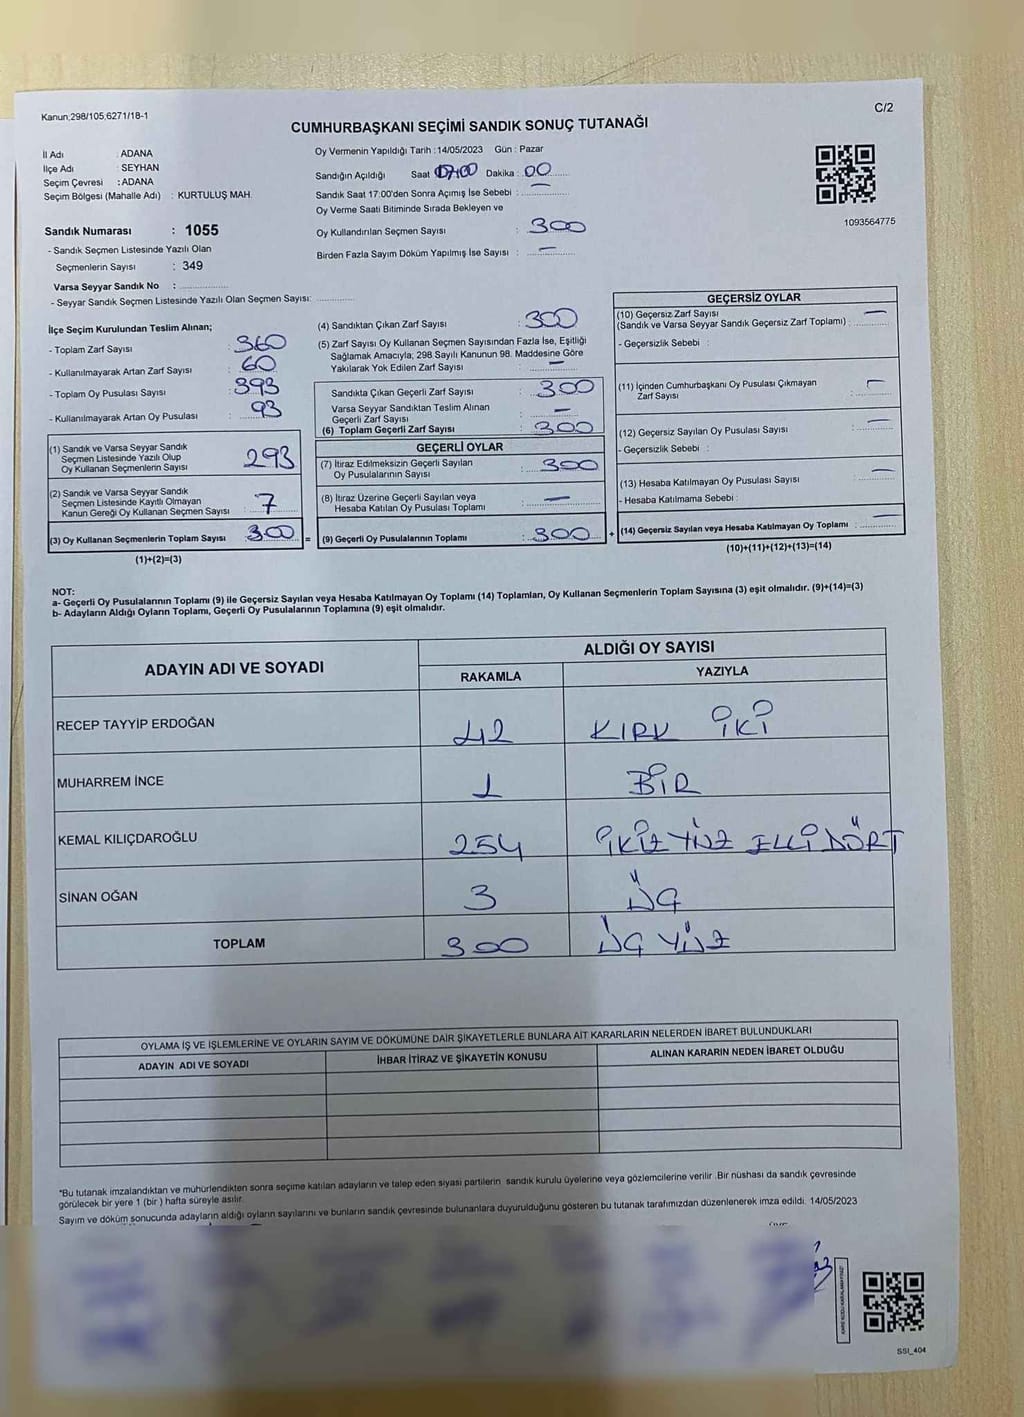 Kanun;298/105;6271/18-1
C/2
CUMHURBAŞKANI SEÇİMİ SANDIK SONUÇ TUTANAĞI
İl Adı : ADANA
İlçe Adı : SEYHAN
Seçim Çevresi : ADANA
Seçim Bölgesi (Mahalle Adı) : KURTULUŞ MAH.
Sandık Numarası : 1055
- Sandık Seçmen Listesinde Yazılı Olan
Seçmenlerin Sayısı : 349
Varsa Seyyar Sandık No :
- Seyyar Sandık Seçmen Listesinde Yazılı Olan Seçmen Sayısı:
Oy Vermenin Yapıldığı Tarih :14/05/2023 Gün : Pazar
Sandığın Açıldığı Saat Dakika : 00
Sandık Saat 17:00'den Sonra Açımış İse Sebebi : —
Oy Verme Saati Bitiminde Sırada Bekleyen ve
Oy Kullandırılan Seçmen Sayısı : 300
Birden Fazla Sayım Döküm Yapılmış İse Sayısı : —
1093564775
İlçe Seçim Kurulundan Teslim Alınan;
- Toplam Zarf Sayısı : 360
- Kullanılmayarak Artan Zarf Sayısı : 60
- Toplam Oy Pusulası Sayısı : 393
- Kullanılmayarak Artan Oy Pusulası : 93
(1) Sandık ve Varsa Seyyar Sandık
Seçmen Listesinde Yazılı Olup
Oy Kullanan Seçmenlerin Sayısı : 293
(2) Sandık ve Varsa Seyyar Sandık
Seçmen Listesinde Kayıtlı Olmayan
Kanun Gereği Oy Kullanan Seçmen Sayısı : 7
(3) Oy Kullanan Seçmenlerin Toplam Sayısı : 300 =
(1)+(2)=(3)
(4) Sandıktan Çıkan Zarf Sayısı : 300
(5) Zarf Sayısı Oy Kullanan Seçmen Sayısından Fazla İse, Eşitliği
Sağlamak Amacıyla; 298 Sayılı Kanunun 98. Maddesine Göre
Yakılarak Yok Edilen Zarf Sayısı : —
Sandıkta Çıkan Geçerli Zarf Sayısı : 300
Varsa Seyyar Sandıktan Teslim Alınan
Geçerli Zarf Sayısı : —
(6) Toplam Geçerli Zarf Sayısı : 300
GEÇERLİ OYLAR
(7) İtiraz Edilmeksizin Geçerli Sayılan
Oy Pusulalarının Sayısı : 300
(8) İtiraz Üzerine Geçerli Sayılan veya
Hesaba Katılan Oy Pusulası Toplamı : —
(9) Geçerli Oy Pusulalarının Toplamı : 300 +
GEÇERSİZ OYLAR
(10) Geçersiz Zarf Sayısı
(Sandık ve Varsa Seyyar Sandık Geçersiz Zarf Toplamı) : —
- Geçersizlik Sebebi :
(11) İçinden Cumhurbaşkanı Oy Pusulası Çıkmayan
Zarf Sayısı : —
(12) Geçersiz Sayılan Oy Pusulası Sayısı : —
- Geçersizlik Sebebi :
(13) Hesaba Katılmayan Oy Pusulası Sayısı : —
- Hesaba Katılmama Sebebi :
(14) Geçersiz Sayılan veya Hesaba Katılmayan Oy Toplamı : —
(10)+(11)+(12)+(13)=(14)
NOT:
a- Geçerli Oy Pusulalarının Toplamı (9) ile Geçersiz Sayılan veya Hesaba Katılmayan Oy Toplamı (14) Toplamları, Oy Kullanan Seçmenlerin Toplam Sayısına (3) eşit olmalıdır. (9)+(14)=(3)
b- Adayların Aldığı Oyların Toplamı, Geçerli Oy Pusulalarının Toplamına (9) eşit olmalıdır.
ADAYIN ADI VE SOYADI
ALDIĞI OY SAYISI
RAKAMLA YAZIYLA
RECEP TAYYİP ERDOĞAN 42 KIRK İKİ
MUHARREM İNCE 1 BİR
KEMAL KILIÇDAROĞLU 254 İKİZ YÜZ ELLİ DÖRT
SİNAN OĞAN 3 ÜÇ
TOPLAM 300 ÜÇ YÜZ
OYLAMA İŞ VE İŞLEMLERİNE VE OYLARIN SAYIM VE DÖKÜMÜNE DAİR ŞİKAYETLERLE BUNLARA AİT KARARLARIN NELERDEN İBARET BULUNDUKLARI
ADAYIN ADI VE SOYADI İHBAR İTİRAZ VE ŞİKAYETİN KONUSU ALINAN KARARIN NEDEN İBARET OLDUĞU
*Bu tutanak imzalandıktan ve mühürlendikten sonra seçime katılan adayların ve talep eden siyasi partilerin sandık kurulu üyelerine veya gözlemcilerine verilir .Bir nüshası da sandık çevresinde
görülecek bir yere 1 (bir ) hafta süreyle asılır.
Sayım ve döküm sonucunda adayların aldığı oyların sayılarını ve bunların sandık çevresinde bulunanlara duyurulduğunu gösteren bu tutanak tarafımızdan düzenlenerek imza edildi. 14/05/2023
KARE KODU KARALAMAYINIZ!
SSI_404